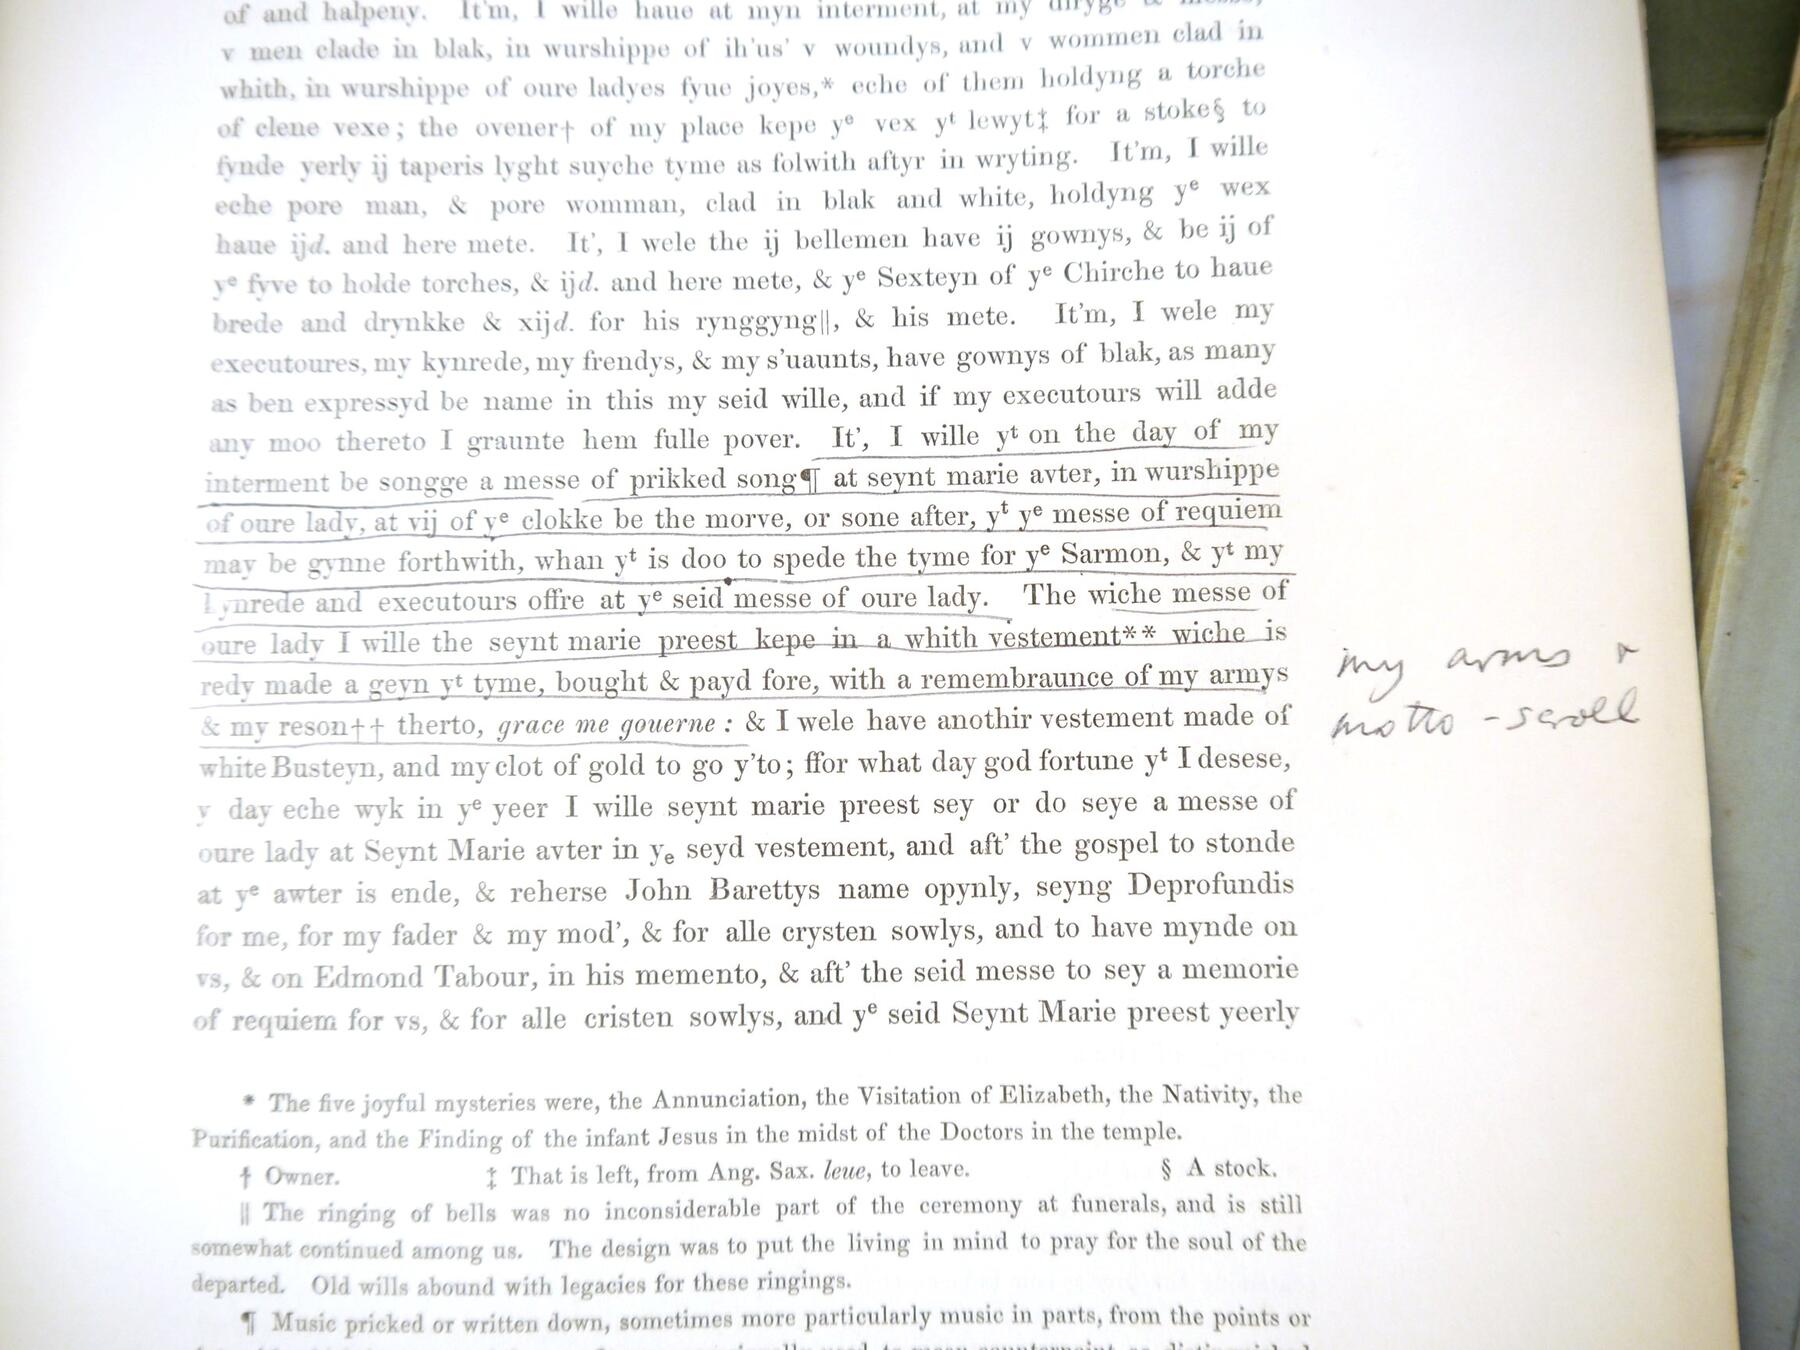 of and halpeny. It'm, I wille haue at myn interment, at my diryge & messe,
v men clade in blak, in wurshippe of ih'us' v woundys, and v wommen clad in
whith, in wurshippe of oure ladyes fyue joyes,* eche of them holdyng a torche
of clene vexe; the ovener† of my place kepe yᵉ vex yᵗ lewyt‡ for a stoke§ to
fynde yerly ij taperis lyght suyche tyme as folwith aftyr in wryting. It'm, I wille
eche pore man, & pore womman, clad in blak and white, holdyng yᵉ wex
haue ijd. and here mete. It', I wele the ij bellemen have ij gownys, & be ij of
yᵉ fyve to holde torches, & ijd. and here mete, & yᵉ Sexteyn of yᵉ Chirche to haue
brede and drynkke & xijd. for his rynggyng‖, & his mete. It'm, I wele my
executoures, my kynrede, my frendys, & my s'uaunts, have gownys of blak, as many
as ben expressyd be name in this my seid wille, and if my executours will adde
any moo thereto I graunte hem fulle pover. It', I wille yᵗ on the day of my
interment be songge a messe of prikked song¶ at seynt marie avter, in wurshippe
of oure lady, at vij of yᵉ clokke be the morve, or sone after, yᵗ yᵉ messe of requiem
may be gynne forthwith, whan yᵗ is doo to spede the tyme for yᵉ Sarmon, & yᵗ my
kynrede and executours offre at yᵉ seid messe of oure lady. The wiche messe of
oure lady I wille the seynt marie preest kepe in a whith vestement** wiche is
redy made a geyn yᵗ tyme, bought & payd fore, with a remembraunce of my armys
& my reson†† therto, grace me gouerne: & I wele have anothir vestement made of
white Busteyn, and my clot of gold to go y'to; ffor what day god fortune yᵗ I desese,
y day eche wyk in yᵉ yeer I wille seynt marie preest sey or do seye a messe of
oure lady at Seynt Marie avter in yₑ seyd vestement, and aft' the gospel to stonde
at yᵉ awter is ende, & reherse John Barettys name opynly, seyng Deprofundis
for me, for my fader & my mod', & for alle crysten sowlys, and to have mynde on
vs, & on Edmond Tabour, in his memento, & aft' the seid messe to sey a memorie
of requiem for vs, & for alle cristen sowlys, and yᵉ seid Seynt Marie preest yeerly
my arms &
motto-scroll
* The five joyful mysteries were, the Annunciation, the Visitation of Elizabeth, the Nativity, the
Purification, and the Finding of the infant Jesus in the midst of the Doctors in the temple.
† Owner. ‡ That is left, from Ang. Sax. leue, to leave. § A stock.
‖ The ringing of bells was no inconsiderable part of the ceremony at funerals, and is still
somewhat continued among us. The design was to put the living in mind to pray for the soul of the
departed. Old wills abound with legacies for these ringings.
¶ Music pricked or written down, sometimes more particularly music in parts, from the points or